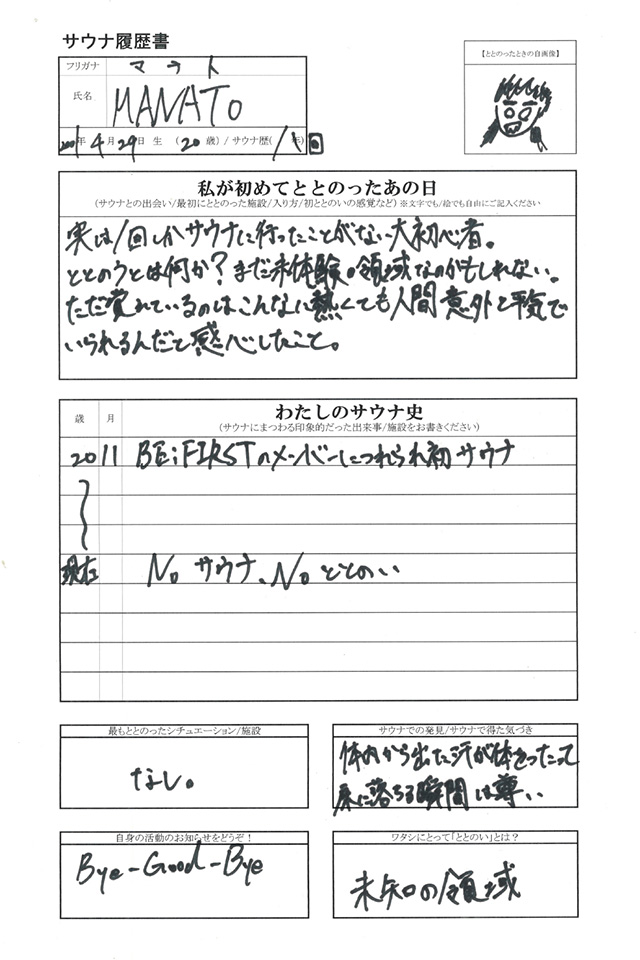 サウナ履歴書
【ととのったときの自画像】
フリガナ マナト
氏名 MANATO
2001年 4月 29日 生 (20歳) / サウナ歴( 1 年) 回
私が初めてととのったあの日
(サウナとの出会い/最初にととのった施設/入り方/初ととのいの感覚など) ※文字でも/絵でも自由にご記入ください
実は1回しかサウナに行ったことがない大初心者。
ととのうとは何か?まだ未体験の領域なのかもしれない。
ただ覚れているのはこんなに熱くても人間意外と平気で
いられるんだと感心したこと。
歳 月 わたしのサウナ史
(サウナにまつわる印象的だった出来事/施設をお書きください)
20 11 BE:FIRSTのメンバーにつれられ初サウナ
現在 No サウナ、No ととのい
最もととのったシチュエーション/施設
なし。
サウナでの発見/サウナで得た気づき
体内から出た汗が体をつたって
床に落ちる瞬間は尊い
自身の活動のお知らせをどうぞ!
Bye-Good-Bye
ワタシにとって「ととのい」とは?
未知の領域